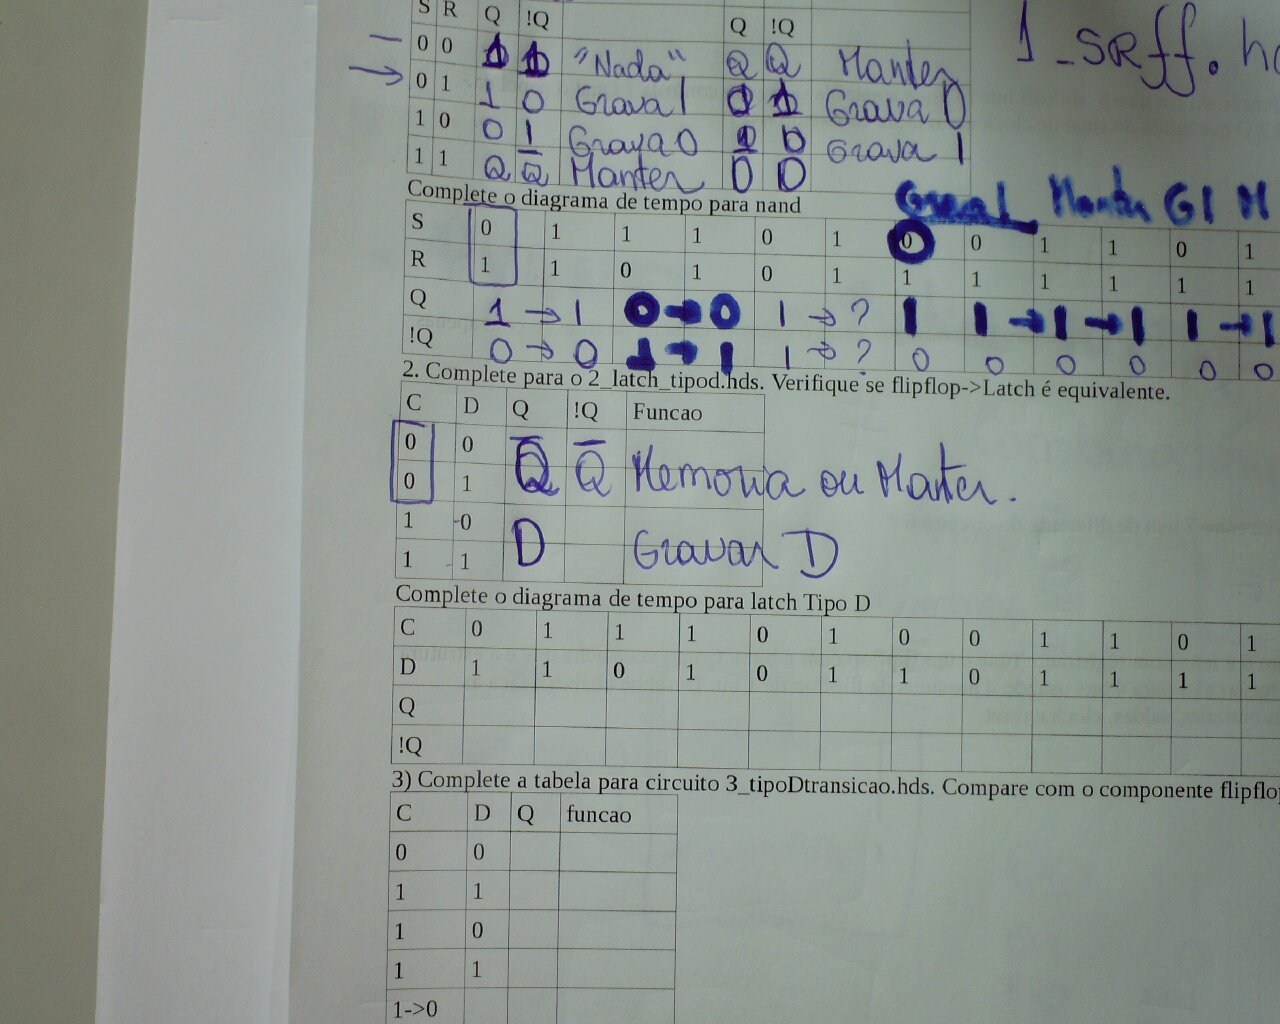 S R Q !Q Q !Q
0 0 1 1 "Nada" Q Q̅ Manter
0 1 1 0 Grava 1 0 1 Grava 0
1 0 0 1 Grava 0 1 0 Grava 1
1 1 Q Q̅ Manter 0 0
1_SRff.h
Complete o diagrama de tempo para nand
Grava 1 Manter G1 M
S 0 1 1 1 0 1 0 0 1 1 0 1
R 1 1 0 1 0 1 1 1 1 1 1 1
Q 1 → 1 0 → 0 1 → ? 1 1 → 1 → 1 1 → 1
!Q 0 → 0 1 → 1 1 → ? 0 0 0 0 0 0
2. Complete para o 2_latch_tipod.hds. Verifique se flipflop->Latch é equivalente.
C D Q !Q Funcao
0 0
Q Q̅ Memoria ou Manter.
0 1
1 0
D Gravar D
1 1
Complete o diagrama de tempo para latch Tipo D
C 0 1 1 1 0 1 0 0 1 1 0 1
D 1 1 0 1 0 1 1 0 1 1 1 1
Q
!Q
3) Complete a tabela para circuito 3_tipoDtransicao.hds. Compare com o componente flipflo
C D Q funcao
0 0
1 1
1 0
1 1
1->0